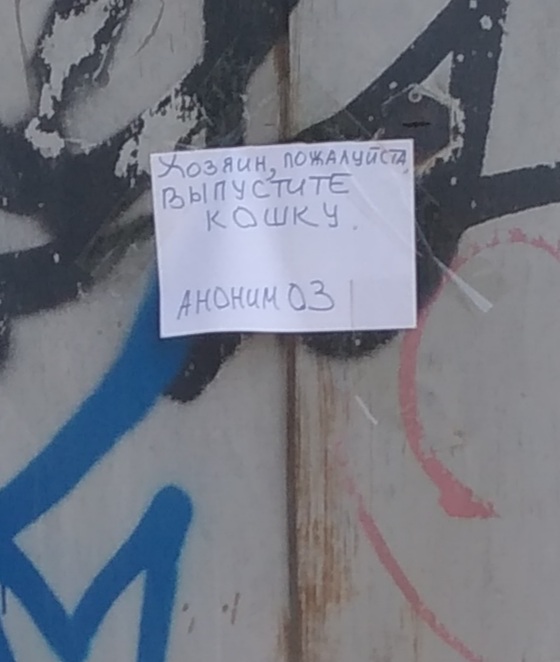 Хозяин, пожалуйста
выпустите
кошку.
Аноним 03